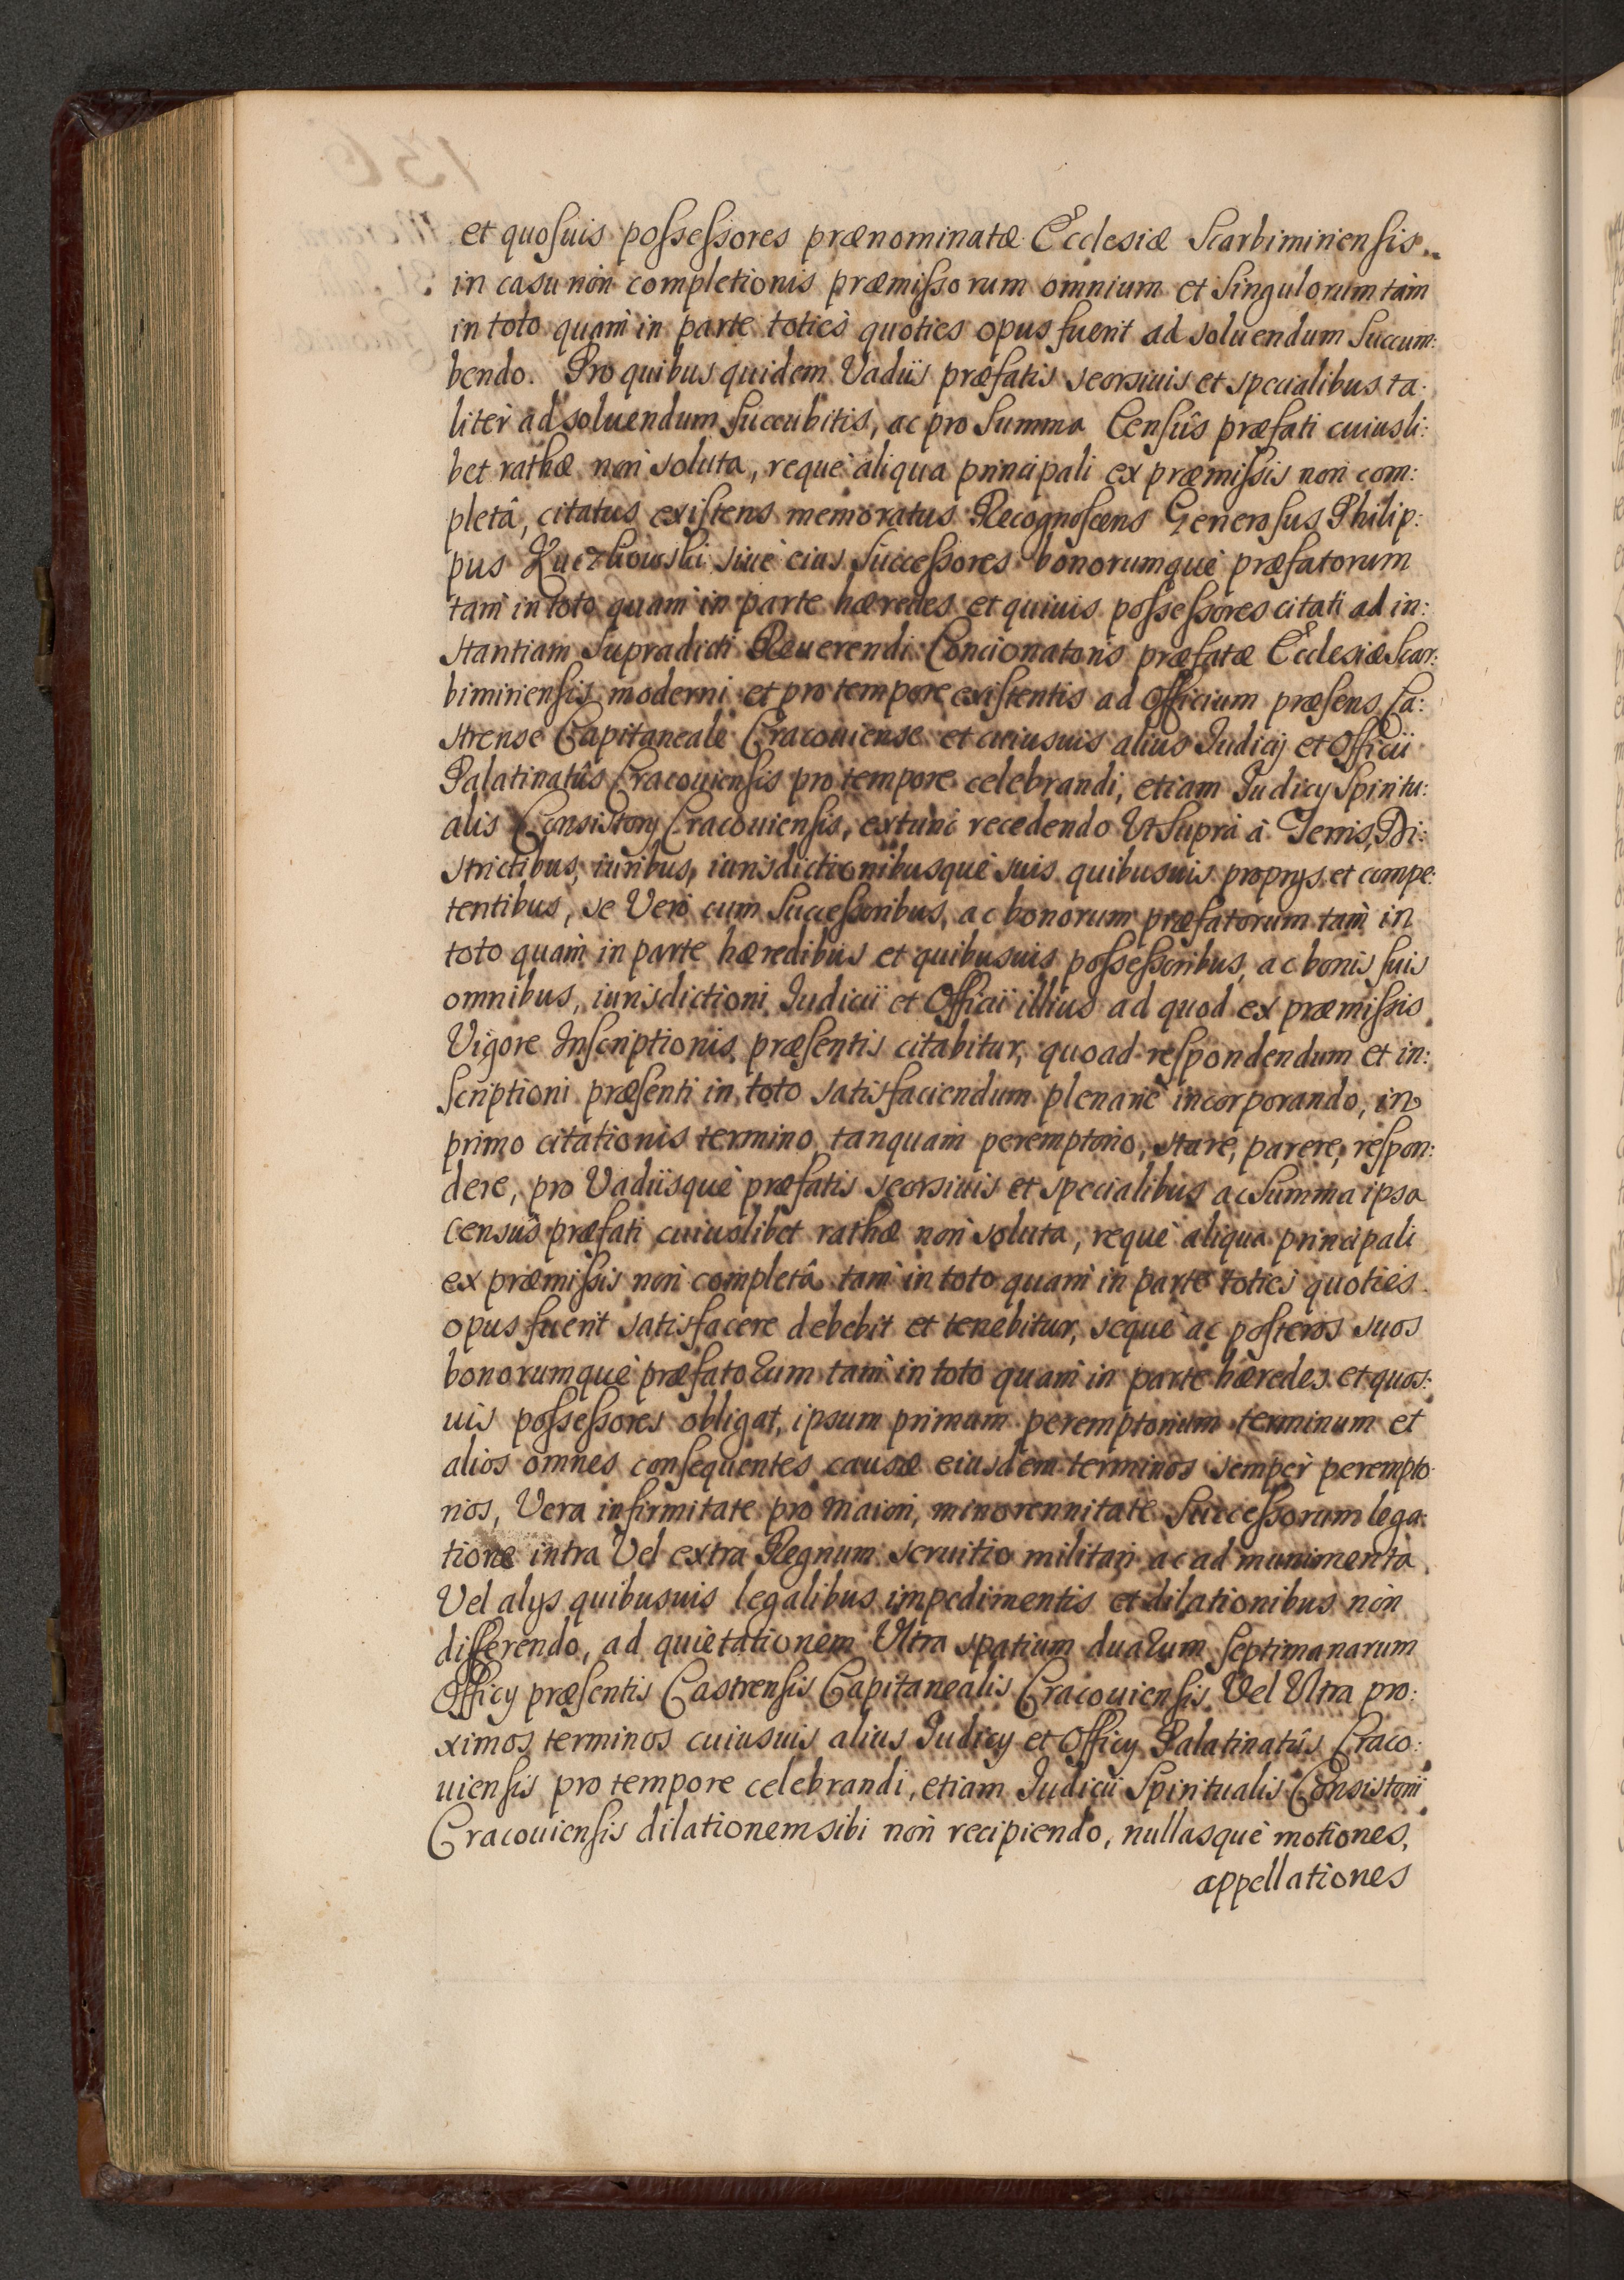 et quosuis possessores prænominatæ Ecclesiæ Scarbimiriensis
in casu non completionis præmissorum omnium et singulorum tàm
in toto quàm in parte toties quoties opus fuerit ad soluendum succum:
bendo. Pro quibus quidem Vadiis præfatis seorsiuis et specialibus ta:
litèr ad soluendum succubitis, ac pro summa Censûs præfati cuiusli:
bet rathæ non soluta, requè aliqua principali ex præmissis non com:
pletâ, citatus existens memoratus Recognoscens Generosus Philip:
pus siuè eius successores bonorumquè præfatorum
tam in toto quàm in parte hæredes et quiuis possessores citati ad in:
stantiam supradicti Reuerendi Concionatoris præfatæ Ecclesiæ Scar:
bimiriensis moderni et pro tempore existentis ad Officium præsens Ca:
strense Capitaneale Cracouiense et cuiusuis alius Iudicij et Officii
Palatinatûs Cracouiensis pro tempore celebrandi, etiam Iudicij Spiritu:
alis Consistorij Cracouiensis, extunc recedendo Vt suprà à Terris, Di:
strictibus, iuribus, iurisdictionibusquè suis quibusuis proprijs et compe:
tentibus, se Verò cum successoribus, ac bonorum præfatorum tàm in
toto quàm in parte hæredibus et quibusuis possessoribus, ac bonis suis
omnibus, iurisdictioni Iudicii et Officii illius ad quod ex præmissis
Vigore Inscriptionis præsentis citabitur, quoad respondendum et in:
scriptioni præsenti in toto satisfaciendum plenariè incorporando, in
primo citationis termino tanquam peremptorio, stare, parere, respon:
dere, pro Vadiisquè præfatis seorsiuis et specialibus ac summa ipsa
censûs præfati cuiuslibet rathæ non soluta, requè aliqua principali
ex præmissis non completâ tam in toto quàm in parte toties quoties
opus fuerit satisfacere debebit et tenebitur, sequè ac posteros suos
bonorumquè præfatorum tam in toto quàm in parte hæredes et quos:
uis possessores obligat, ipsum primum peremptorium terminum et
alios omnes consequentes causæ eiusdem terminos sempèr perempto
rios, Vera infirmitate pro maiori, minorennitate successorum lega:
tione intra Vel extra Regnum seruitio militari ac ad munimenta
Vel alijs quibusuis legalibus impedimentis et dilationibus non
differendo, ad quietationem Vltra spatium duarum septimanarum
Officij præsentis Castrensis Capitanealis Cracouiensis Vel Vltra pro:
ximos terminos cuiusuis alius Iudicij et Officij Palatinatûs Craco:
uiensis pro tempore celebrandi, etiam Iudicii Spiritualis Consistorii
Cracouiensis dilationem sibi non recipiendo, nullasquè motiones,
appellationes